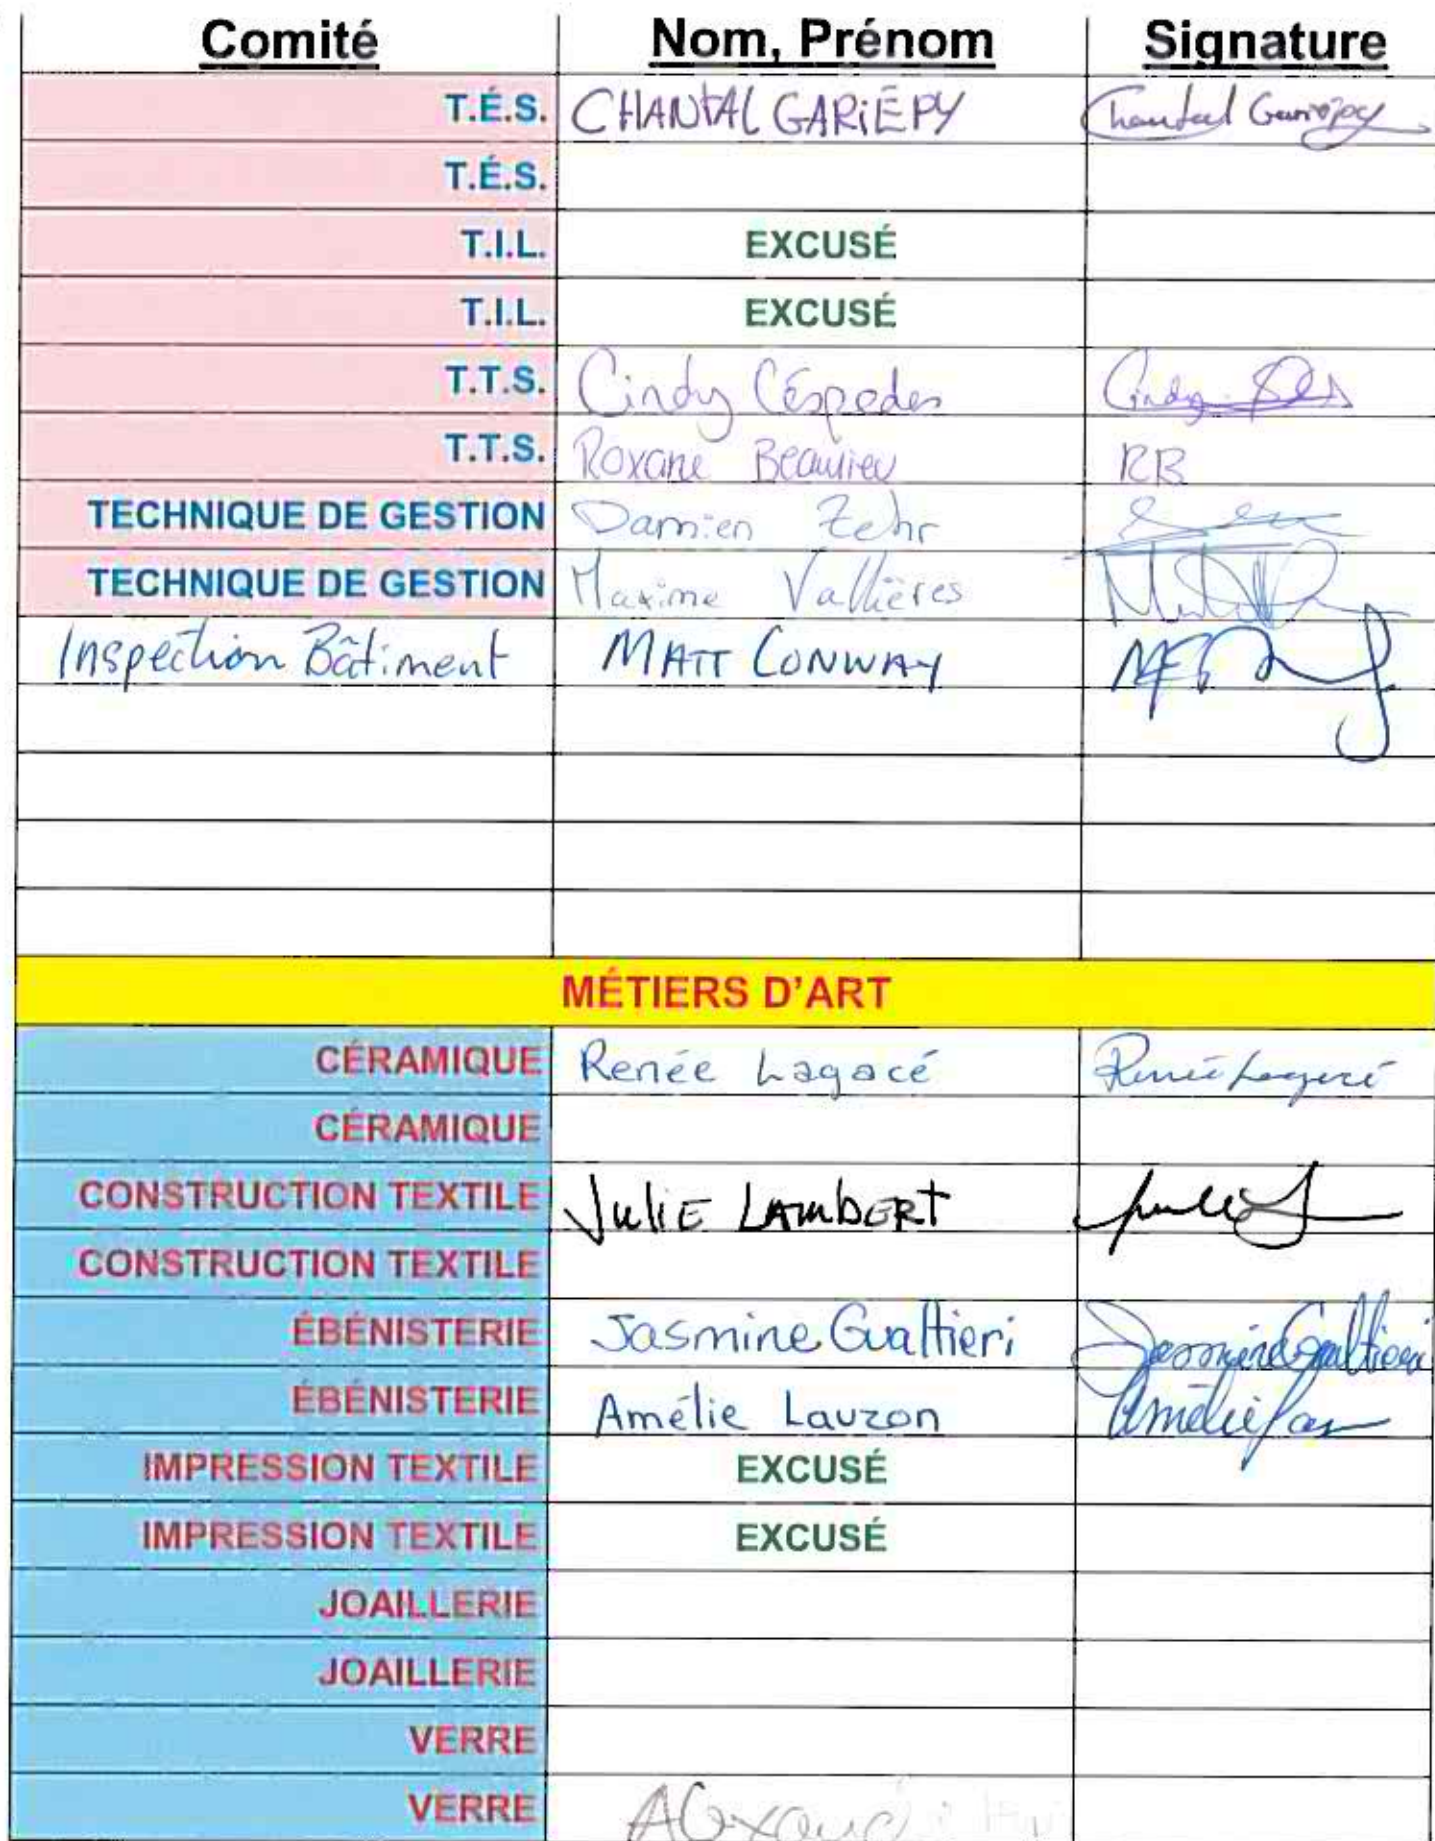 Comité Nom, Prénom Signature
T.É.S. CHANTAL GARIÉPY Chantal Gariépy
T.É.S.
T.I.L. EXCUSÉ
T.I.L. EXCUSÉ
T.T.S. Cindy Céspedes Cindy
T.T.S. Roxane Beaulieu RB
TECHNIQUE DE GESTION Damien Zehr
TECHNIQUE DE GESTION Maxime Vallières
Inspection Bâtiment MATT CONWAY
MÉTIERS D'ART
CÉRAMIQUE Renée Lagacé Renée Lagacé
CÉRAMIQUE
CONSTRUCTION TEXTILE JULIE LAMBERT
CONSTRUCTION TEXTILE
ÉBÉNISTERIE Jasmine Gualtieri Jasmine Gualtieri
ÉBÉNISTERIE Amélie Lauzon Amélie
IMPRESSION TEXTILE EXCUSÉ
IMPRESSION TEXTILE EXCUSÉ
JOAILLERIE
JOAILLERIE
VERRE
VERRE